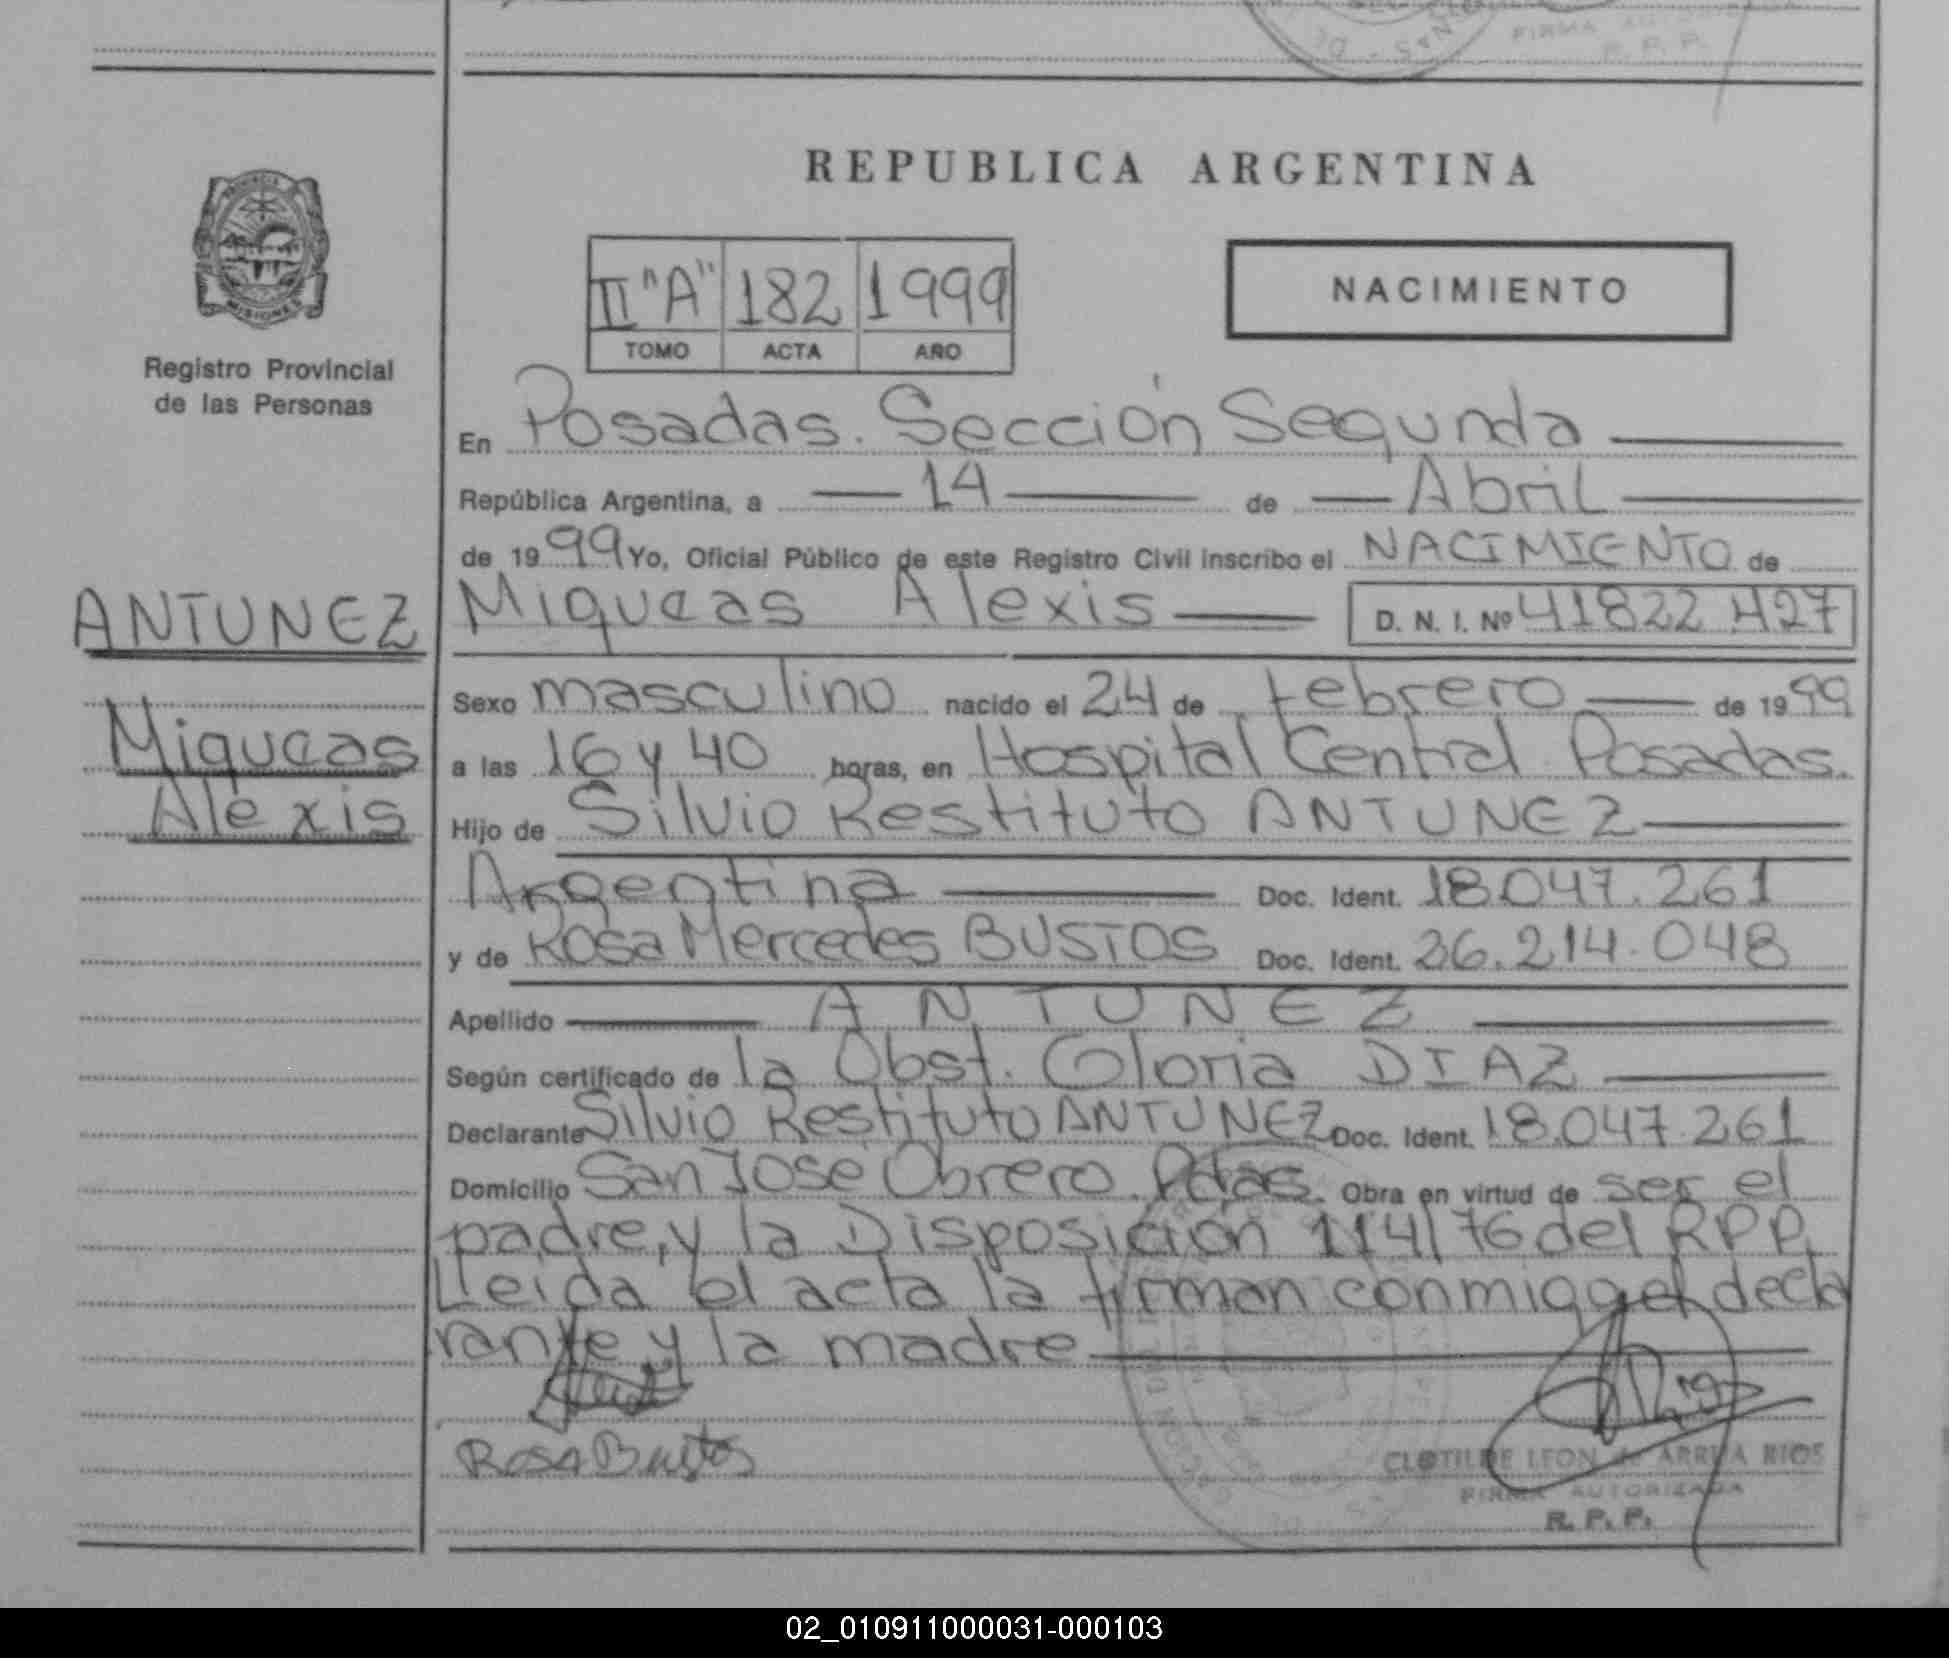 FIRMA AUTORIZADA
R. P. P.
REPUBLICA ARGENTINA
II "A" 182 1999
TOMO ACTA AÑO
NACIMIENTO
MISIONES
Registro Provincial
de las Personas
En Posadas. Sección Segunda
República Argentina, a 14 de Abril
de 1999 Yo, Oficial Público de este Registro Civil inscribo el NACIMIENTO de
ANTUNEZ
Miqueas Alexis D. N. I. Nº 41822427
Miqueas
Alexis
Sexo masculino nacido el 24 de febrero de 1999
a las 16 y 40 horas, en Hospital Central Posadas.
Hijo de Silvio Restituto ANTUNEZ
Argentina Doc. Ident. 18.047.261
y de Rosa Mercedes BUSTOS Doc. Ident. 26.214.048
Apellido ANTUNEZ
Según certificado de la Obst. Gloria DIAZ
Declarante Silvio Restituto ANTUNEZ Doc. Ident. 18.047.261
Domicilio San José Obrero. Pdas. Obra en virtud de ser el
padre, y la Disposición 114/76 del RPP,
Lleida el acta la firman conmigo el decla
rante y la madre
Rosa Bustos
CLOTILDE LEON de ARRUA RIOS
FIRMA AUTORIZADA
R. P. P.
02_010911000031-000103